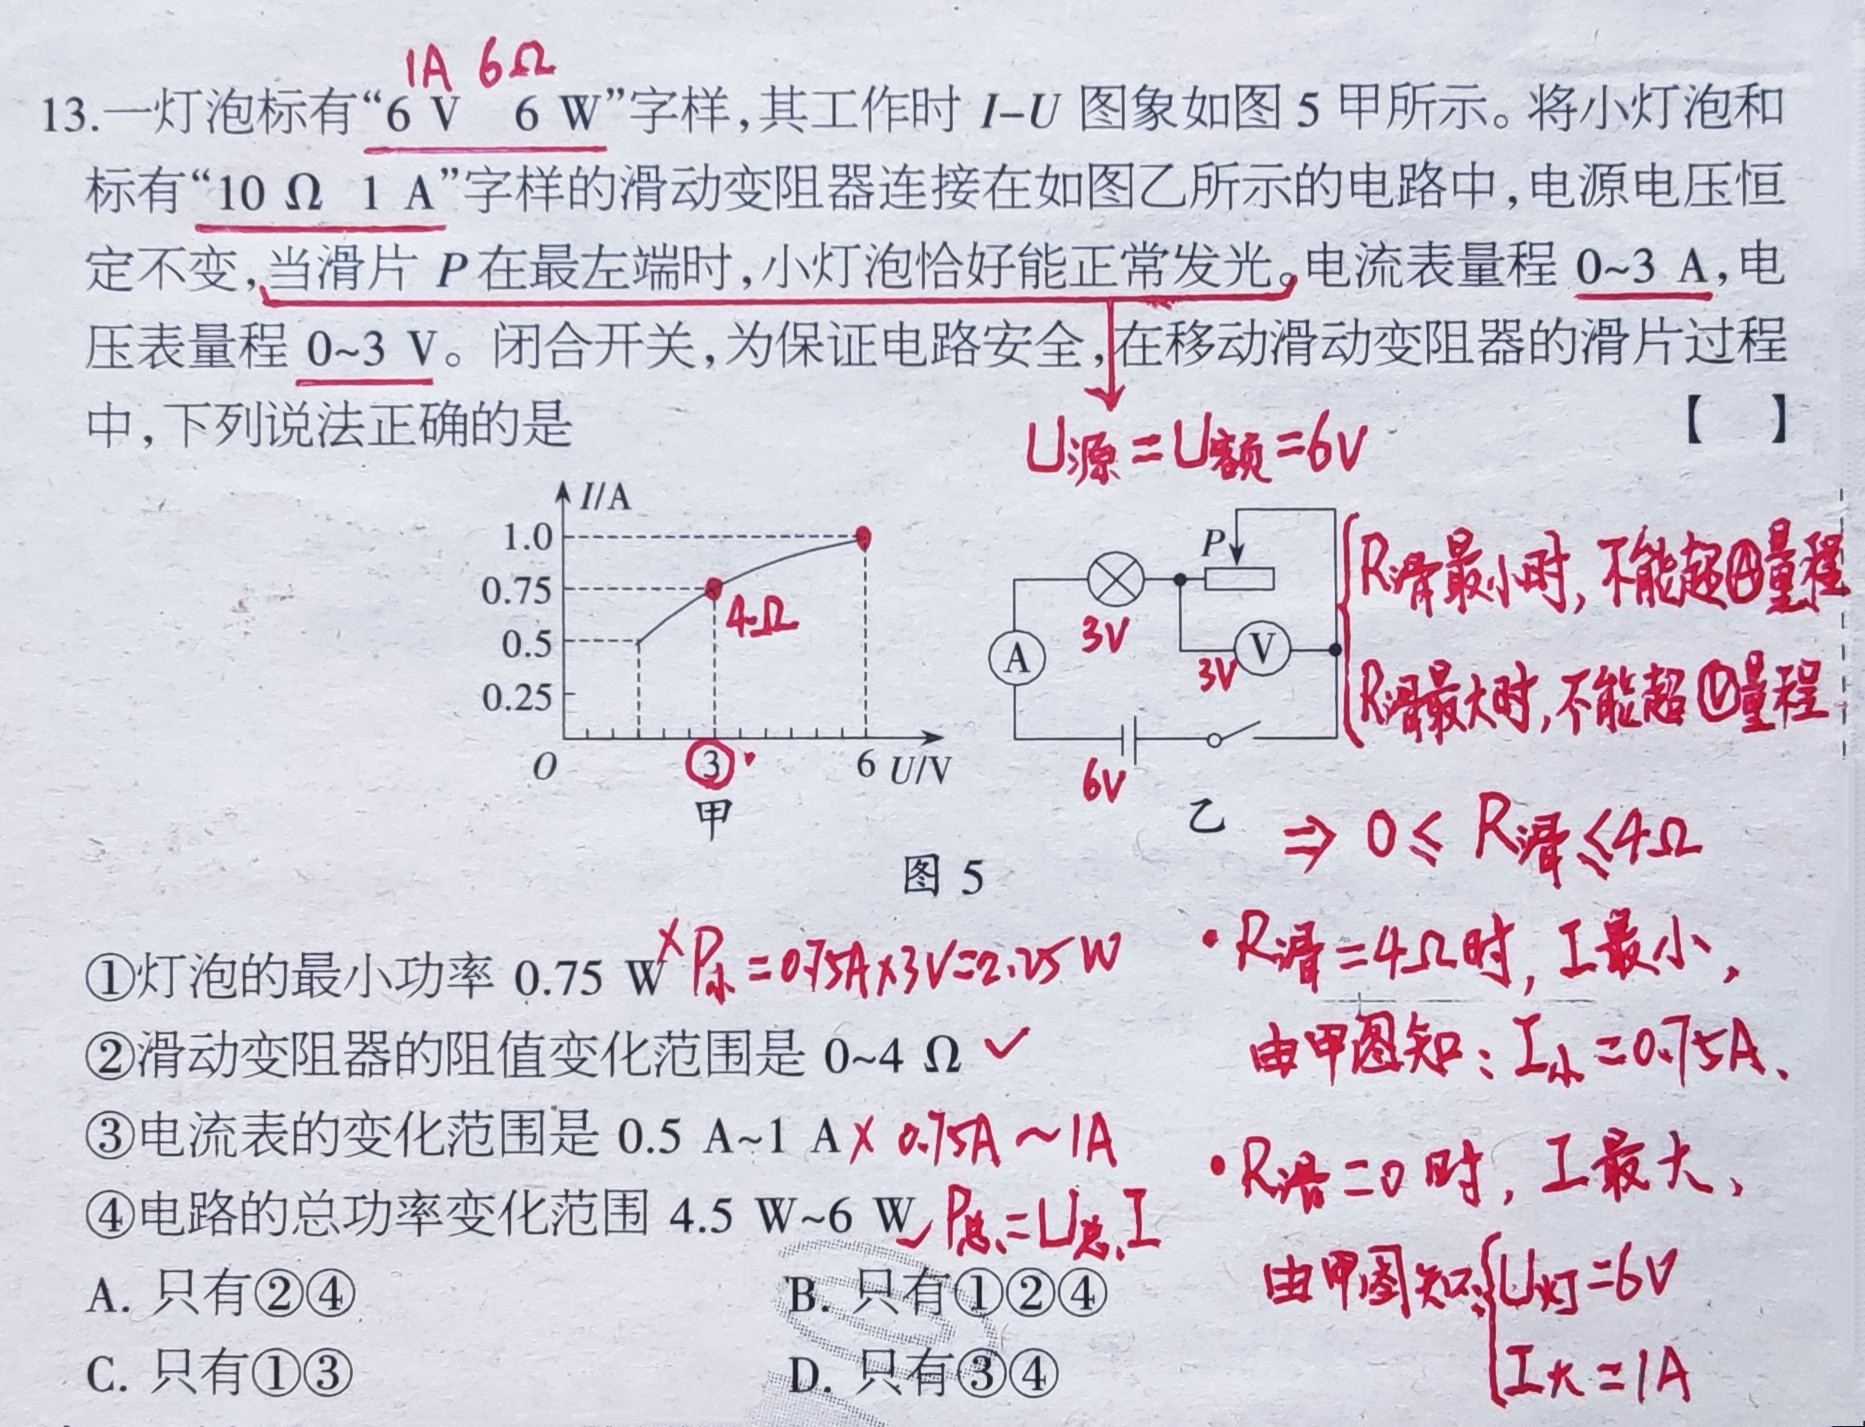 1A 6Ω
13.一灯泡标有“6 V 6 W”字样,其工作时 I-U 图象如图 5 甲所示。将小灯泡和
标有“10 Ω 1 A”字样的滑动变阻器连接在如图乙所示的电路中,电源电压恒
定不变,当滑片 P 在最左端时,小灯泡恰好能正常发光。电流表量程 0~3 A,电
压表量程 0~3 V。闭合开关,为保证电路安全,在移动滑动变阻器的滑片过程
中,下列说法正确的是 【 】
U源=U额=6V
I/A
1.0
0.75
0.5
0.25
O
3
6 U/V
4Ω
甲
P
A
V
3V
3V
6V
乙
R滑最小时,不能超Ⓐ量程
R滑最大时,不能超Ⓥ量程
图 5
⇒ 0≤R滑≤4Ω
①灯泡的最小功率 0.75 W × P小=0.75A×3V=2.25W
②滑动变阻器的阻值变化范围是 0~4 Ω ✓
③电流表的变化范围是 0.5 A~1 A × 0.75A~1A
④电路的总功率变化范围 4.5 W~6 W ✓ P总=U总I
·R滑=4Ω时,I最小,
由甲图知:I小=0.75A、
·R滑=0时,I最大、
由甲图知:{U灯=6V
I大=1A
A. 只有②④
B. 只有①②④
C. 只有①③
D. 只有③④